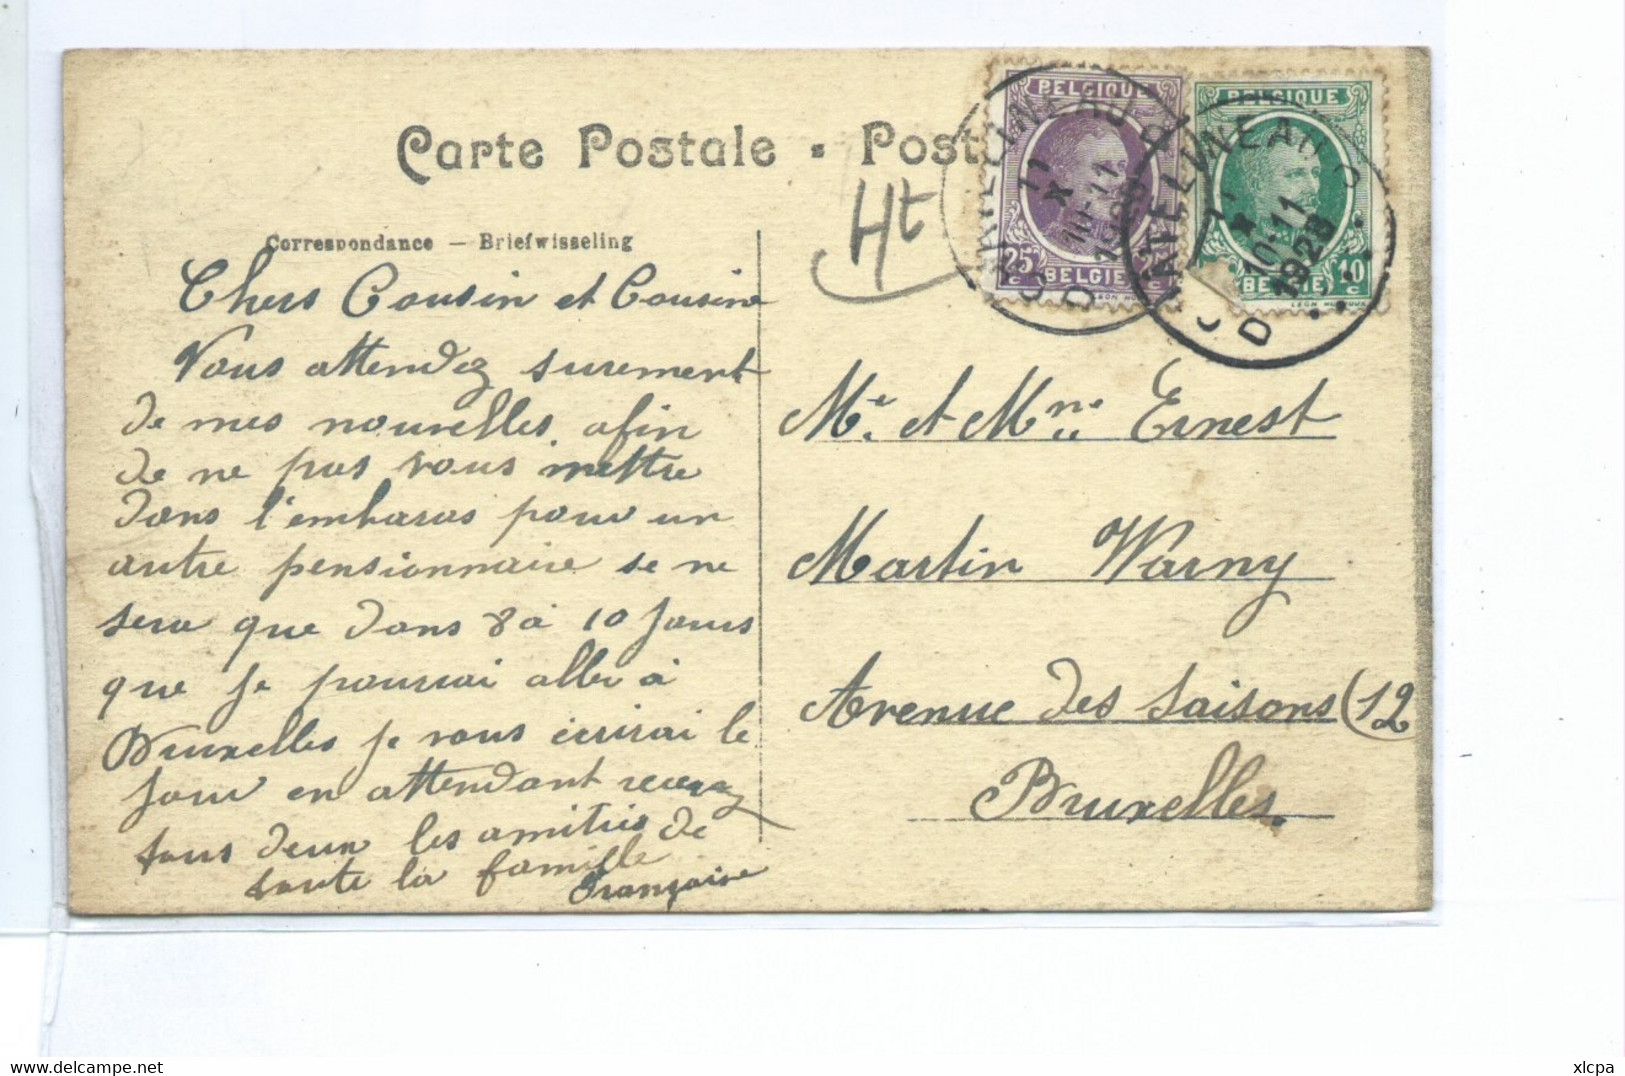 Carte Postale - Post
Correspondance — Briefwisseling
Chers Cousin et Cousine
Vous attendez surement
de mes nouvelles. afin
de ne pas vous mettre
dans l'embaras pour un
autre pensionnaire se ne
sera que dans 8 à 10 jours
que je pourrai aller à
Bruxelles je vous écrirai le
jour en attendant recevez
tous deux les amitiés de
toute la famille
Françoise
Ht
BELGIQUE
25 c
BELGIE
BELGIQUE
10 c
BELGIE
CHATELINEAU
11 X 10-11 1928
D
CHATELINEAU
10-11
1928
D
Mr. et Mme Ernest
Martin Warny
Avenue des Saisons (12
Bruxelles.
xlcpa